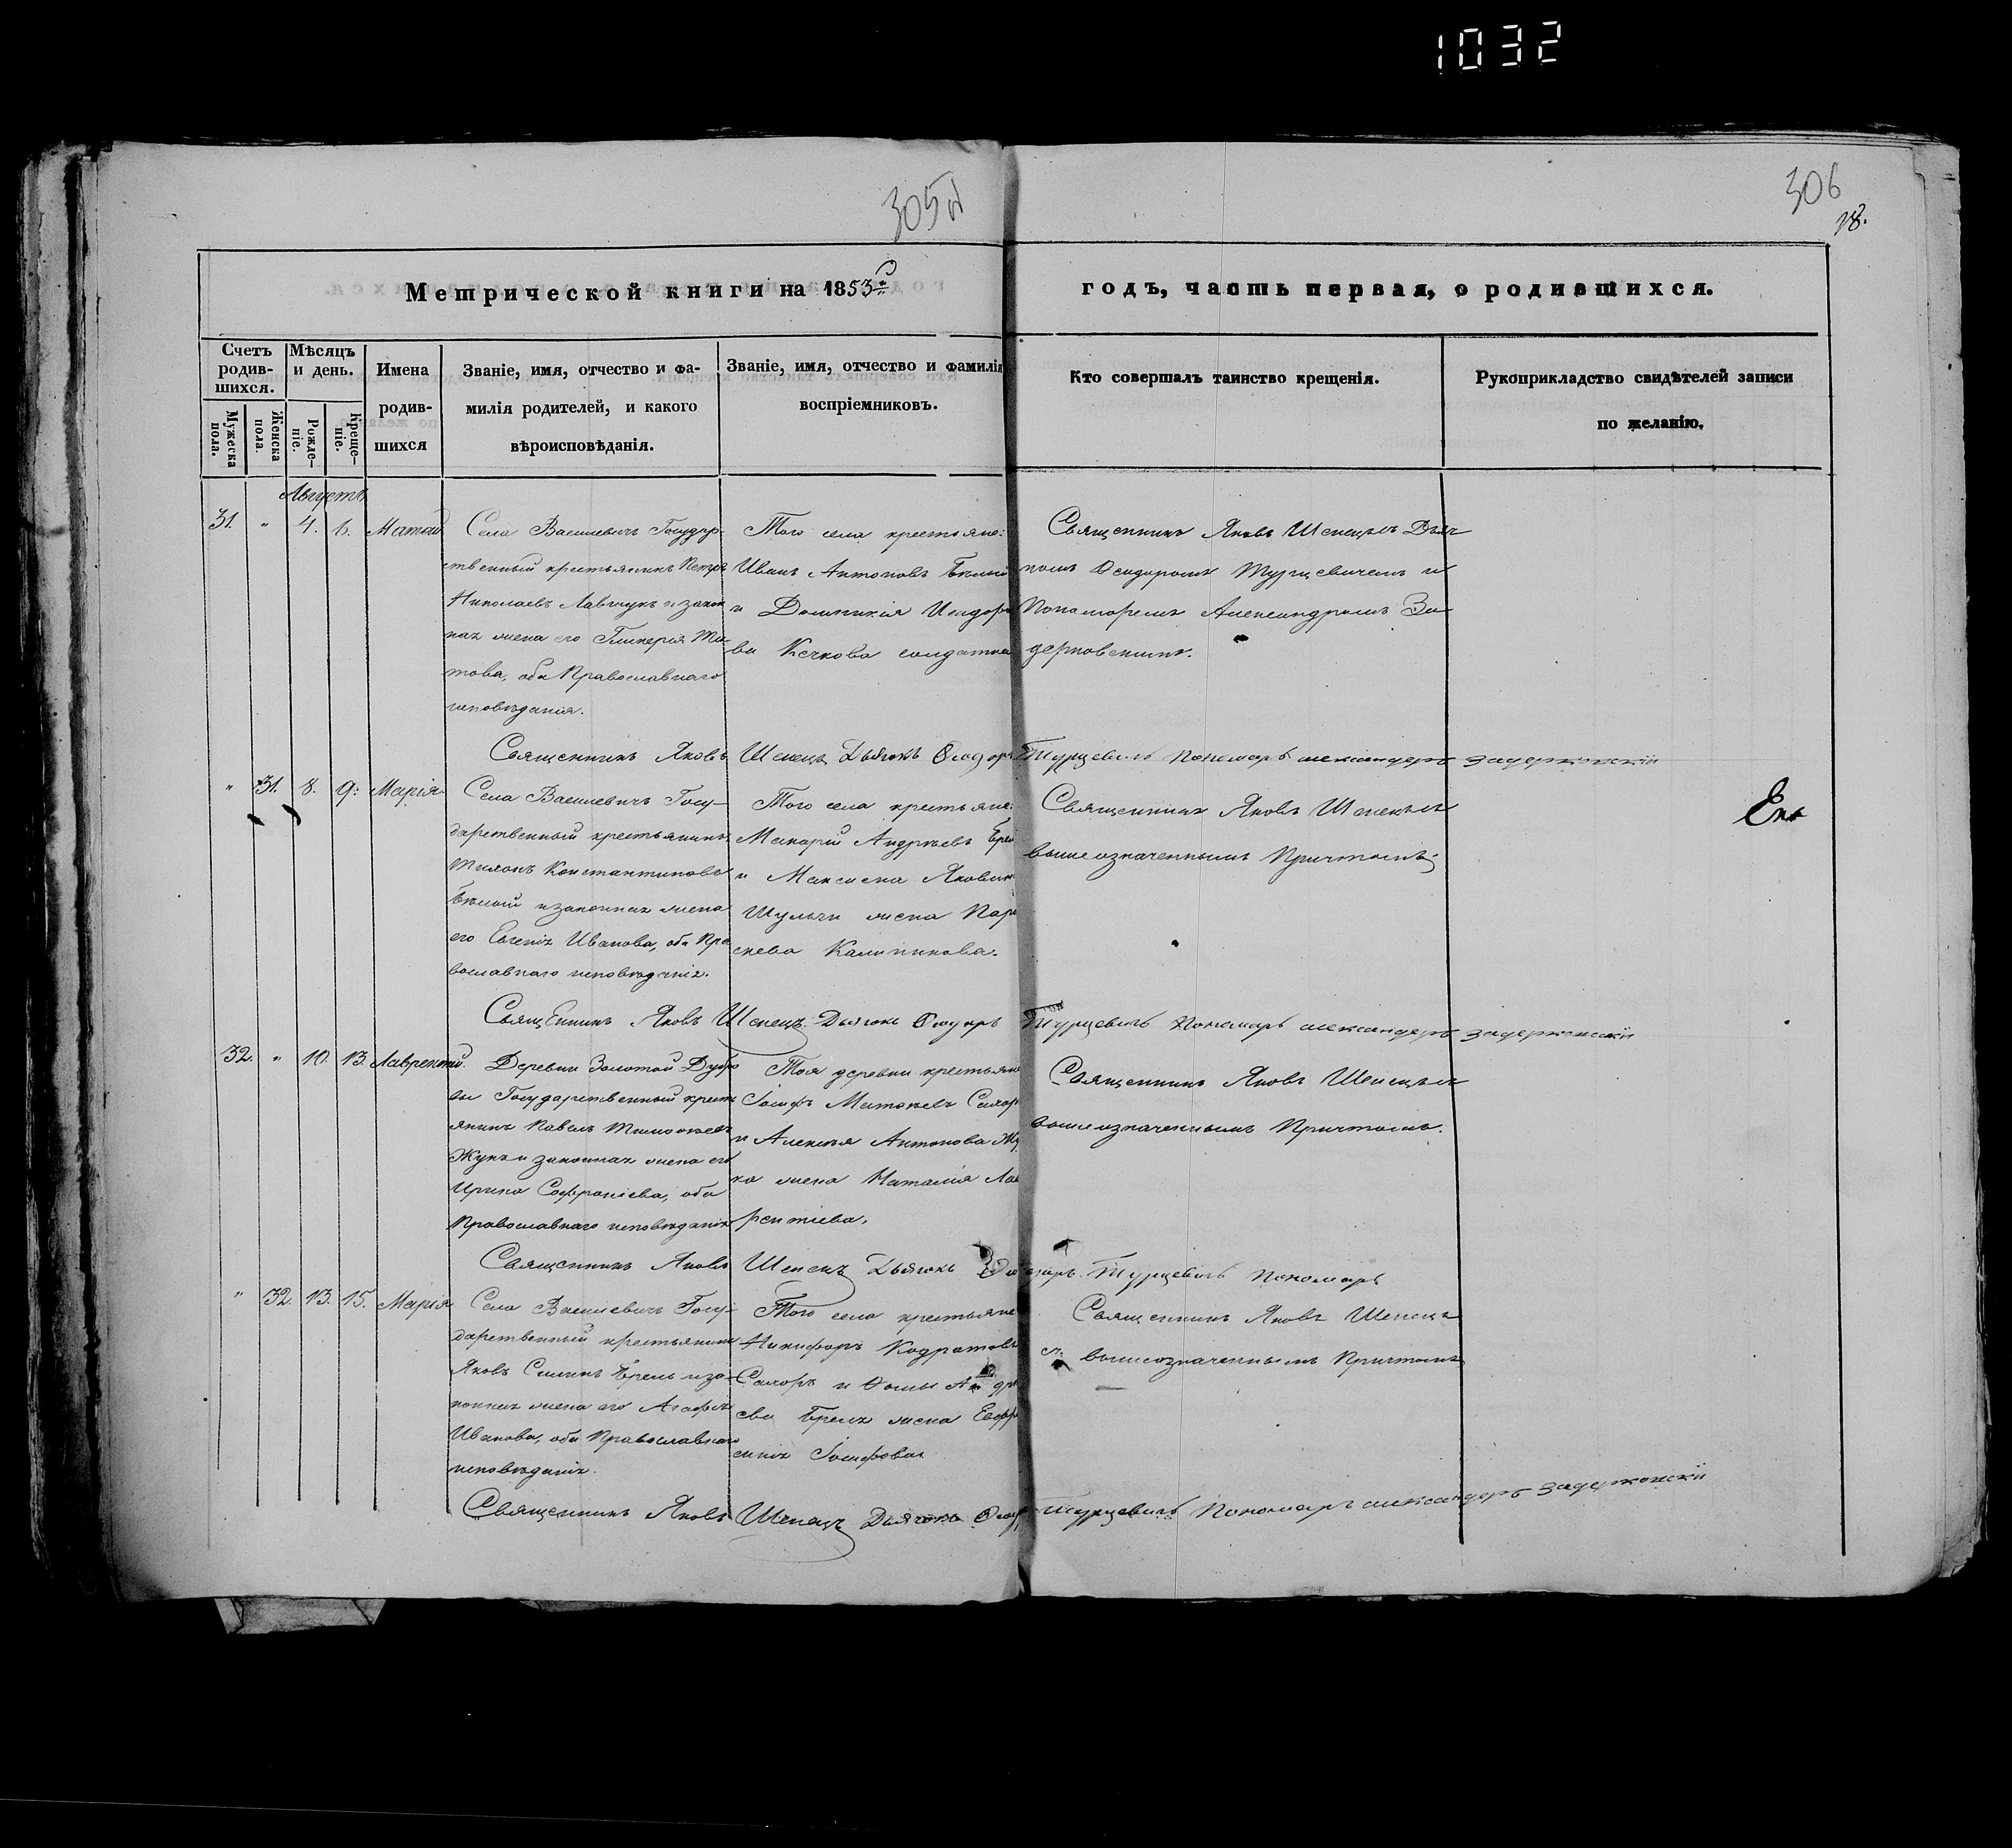 1032
305
306
18.
Метрической книги на 1853й
годъ, часть первая, о родившихся.
Счетъ родив-шихся.
Мужеска пола.
Женска пола.
Мѣсяцъ и день.
Рожде-ніе.
Креще-ніе.
Имена
родив-
шихся
Званіе, имя, отчество и фа-
милія родителей, и какого
вѣроисповѣданія.
Званіе, имя, отчество и фамилія
воспріемниковъ.
Кто совершалъ таинство крещенія.
Рукоприкладство свидѣтелей записи
по желанію.
Августъ
31. " 4. 6.
Села Василевичь Государ-
ственный крестьянинъ Петръ
Николаевъ Лавшукъ и закон
ная жена его Гликерія Ти-
това, оба Православнаго
исповѣданія.
Того села крестьяне:
Иванъ Антоновъ Бѣлый
и Домникія Исидоро
ва Кечкова солдатка
Священникъ Яковъ Шепецъ Дьяч
комъ Ѳеодоромъ Турцевичемъ и
Пономаремъ Александромъ За
Священникъ Яковъ Шепецъ Дьячокъ Ѳеодоръ Турцевичъ Пономарь александеръ
" 31. 8. 9. Марія
Села Василевичь Госу-
дарственный крестьянинъ
Константиновъ
Бѣлый и законная жена
его Евгенія Иванова, оба Пра
вославнаго исповѣданія.
Того села крестьяне:
Макарій Андреевъ
и Яковъ
Шульги жена Пара
скева Калиникова.
Священникъ Яковъ Шепецъ
вышеозначеннымъ Причтомъ.
Священникъ Яковъ Шепецъ Дьячокъ Ѳеодоръ Турцевичъ Пономарь александеръ
32. " 10. 13. Лаврентій.
Деревни Золотой Дубро
вы Государственный крестъ
янинъ Павелъ Тимоѳеевъ
Жукъ и законная жена его
Ирина Софроніева, оба
Православнаго исповѣданія
Тоя деревни крестьяне
Іосифъ Матѳеевъ
и Алексѣя Антонова Жу
ка жена Наталія Лав
рентіева.
Священникъ Яковъ Шепецъ
вышеозначеннымъ Причтомъ.
Священникъ Яковъ Шепецъ Дьячокъ Ѳеодоръ Турцевичъ Пономарь
" 32. 13. 15. Марія
Села Василевичь Госу-
дарственный крестьянинъ
Яковъ и за-
конная жена его Агафія
Иванова, оба Православнаго
исповѣданія.
Того села крестьяне
Никифоръ Кодратовъ
и Ѳомы Андре
ева жена Евфро
синія Іосифова
Священникъ Яковъ Шепецъ
съ вышеозначеннымъ Причтомъ
Священникъ Яковъ Шепецъ Дьячокъ Турцевичъ Пономарь александеръ